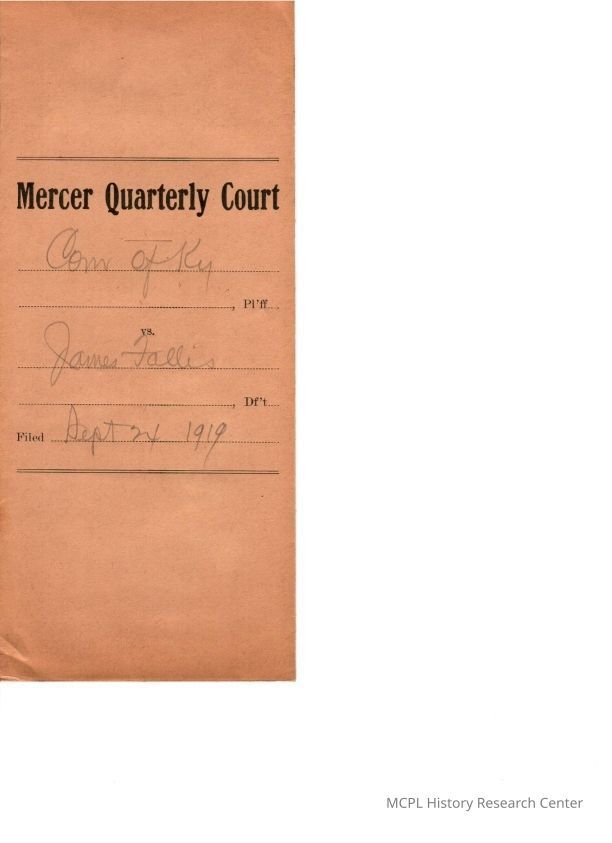 Mercer Quarterly Court
Com of Ky
, Pl'ff.
vs.
James Fallis
, Df't.
Filed Sept 24 1919
MCPL History Research Center